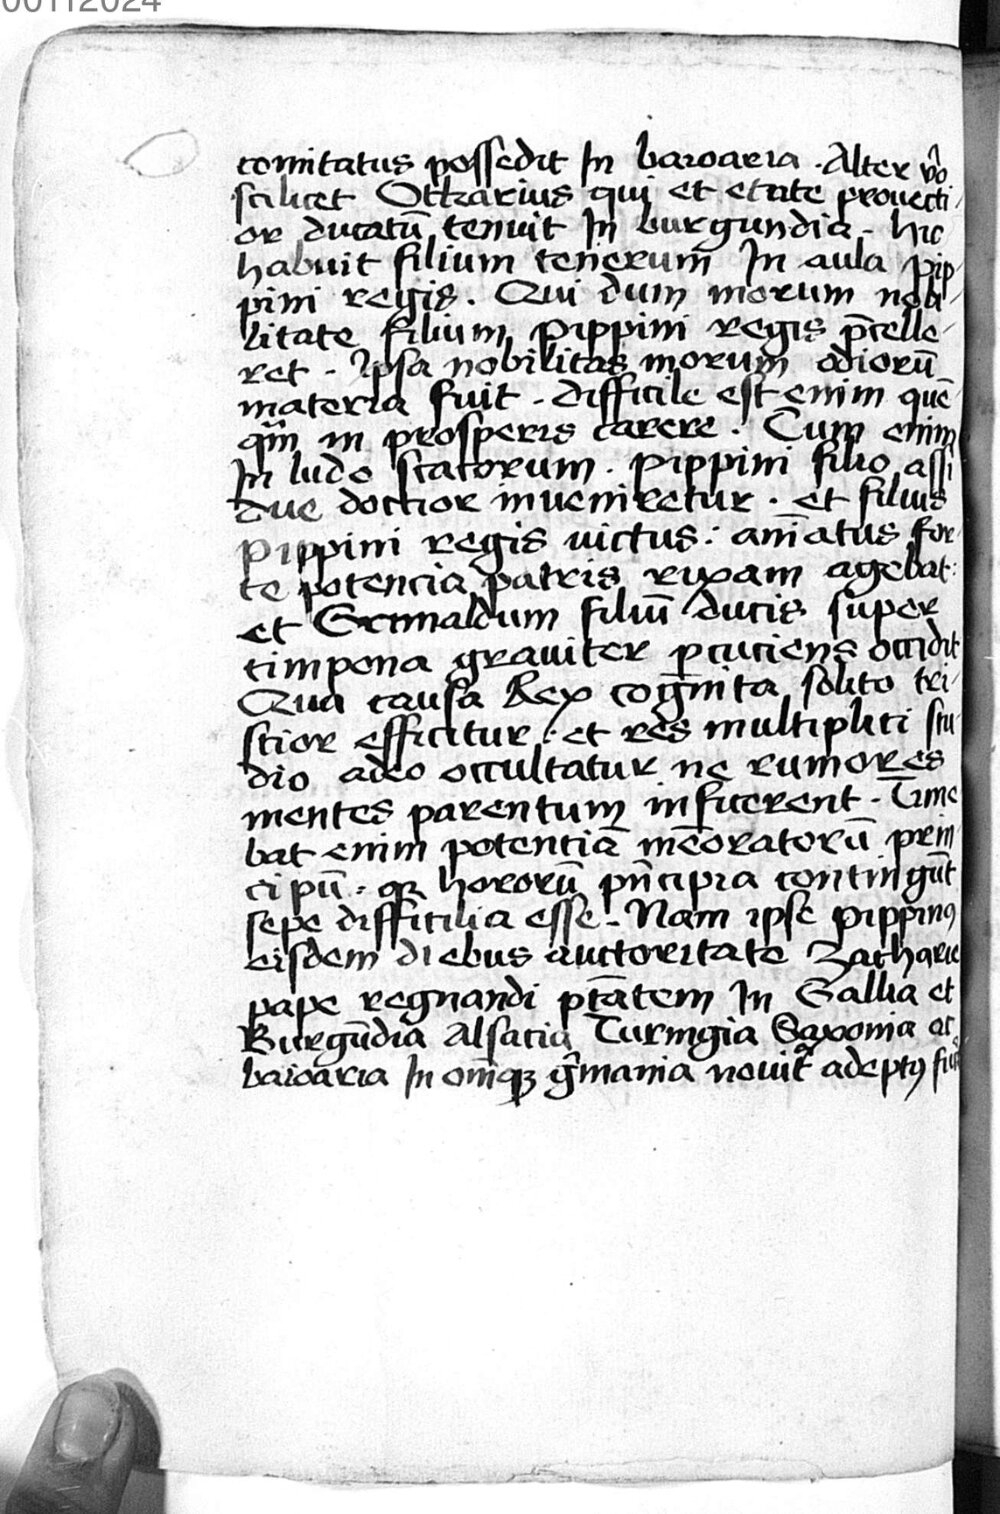 00112024
comitatus possedit In baroaria . Alter v̂o
scilicet Otkarius qui et etate prouecti
or ducatū tenuit In burgundia . hic
habuit filium tenerum̄ In aula pip
pini regis . Qui dum morum nobi
litate filium pippini regis p̄celle
ret . Ipsa nobilitas morum odiorū
materia fuit . difficile est enim quē
qm̄ in prosperis carere . Cum enim
In ludo scacorum . pippini filio assi
due doctior inueniretur . et filius
pippini regis uictus : anīatus for
te potencia patris rixam agebat :
et Grimaldum filiū ducis super
timpona grauiter ꝑcuciens occidit
Qua causa Rex cog̅nita solito tri
stior efficitur : et res multiplici stu
dio adeo occultatur ne rumores
mentes parentum inficerent . Time
bat enim potenciā mēoratorū prin
cipū . qꝫ hororū pn̄cipia contingūt
sepe difficilia esse . Nam ipse pippinꝰ
eisdem diebus auctoritate Zacharie
pape regnandi ptātem In Gallia et
Burgūdia Alsacia Turingia Saxonia ac
baioaria In om̄iqꝫ g̑mania nouit᷑ adeptꝰ